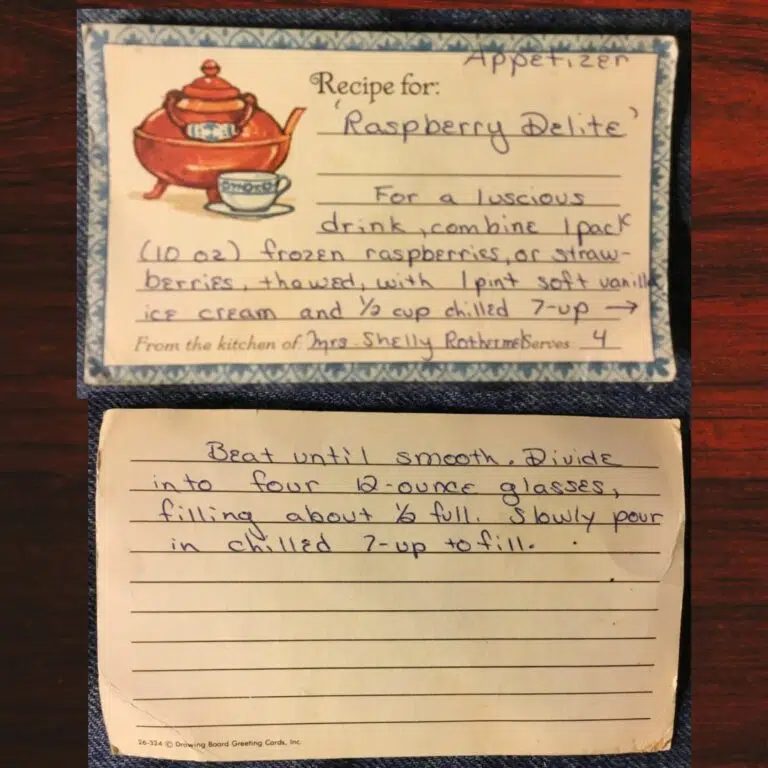 Appetizer
Recipe for:
'Raspberry Delite'
For a luscious
drink, combine 1 pack
(10 oz) frozen raspberries, or straw-
berries, thawed, with 1 pint soft vanilla
ice cream and 1/2 cup chilled 7-up →
From the kitchen of Mrs. Shelly Rothermel Serves 4
Beat until smooth. Divide
into four 12-ounce glasses,
filling about 1/2 full. Slowly pour
in chilled 7-up to fill.
26-324 © Drawing Board Greeting Cards, Inc.